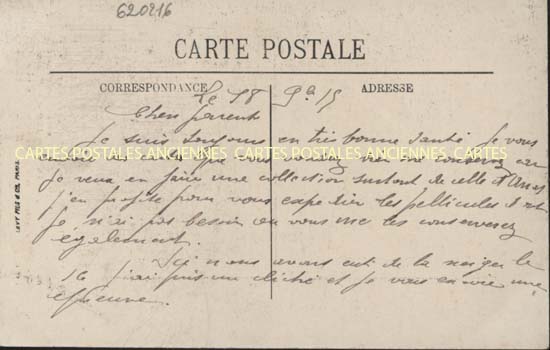 620216
CARTE POSTALE
CORRESPONDANCE
ADRESSE
Le 18 9bre 15
Chers parents
Je suis toujours en très bonne santé. Je vous
CARTES POSTALES ANCIENNES CARTES POSTALES ANCIENNES CARTES POSTALES ANCIENNES
je veux en faire une collection surtout de celle d'Arras
j'en profite pour vous expedier les pellicules
je n'ai pas besoin vous me les conserverez
également.
Ici nous avons eut de la neige le
16 j'ai pris un cliché et je vous envoie une
épreuve.
LEVY FILS & CIE, PARIS.